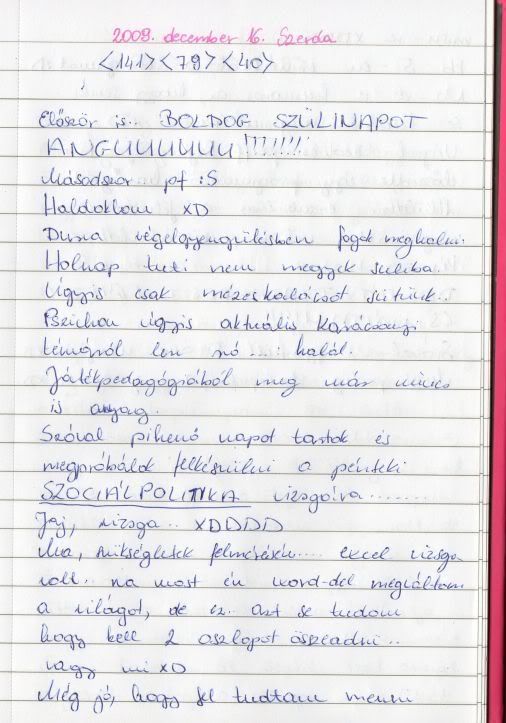 2009. december 16. Szerda
<141> <79> <40>
Először is.. BOLDOG SZÜLINAPOT
ANGUUUUUU!!!!!!!
Másodszor pf :S
Haldoklom XD
Durva végelgyengülésben fogok meghalni.
Holnap tuti nem megyek suliba.
Úgyis csak mézeskalácsot sütünk..
Pszichón úgyis aktuális karácsonyi
témáról len szó.... halál.
Játékpedagógiából meg már nincs
is anyag.
Szóval pihenő napot tartok és
megpróbálok felkészülni a pénteki
SZOCIÁLPOLITIKA vizsgára........
Jaj, vizsga.. XDDDD
Ma, szükségletek felmérésén.... excel vizsga
volt.. na most én word-del megváltom
a világot, de ez.. azt se tudom
hogy kell 2 oszlopot összeadni..
vagy mi XD
Még jó, hogy fel tudtam menni